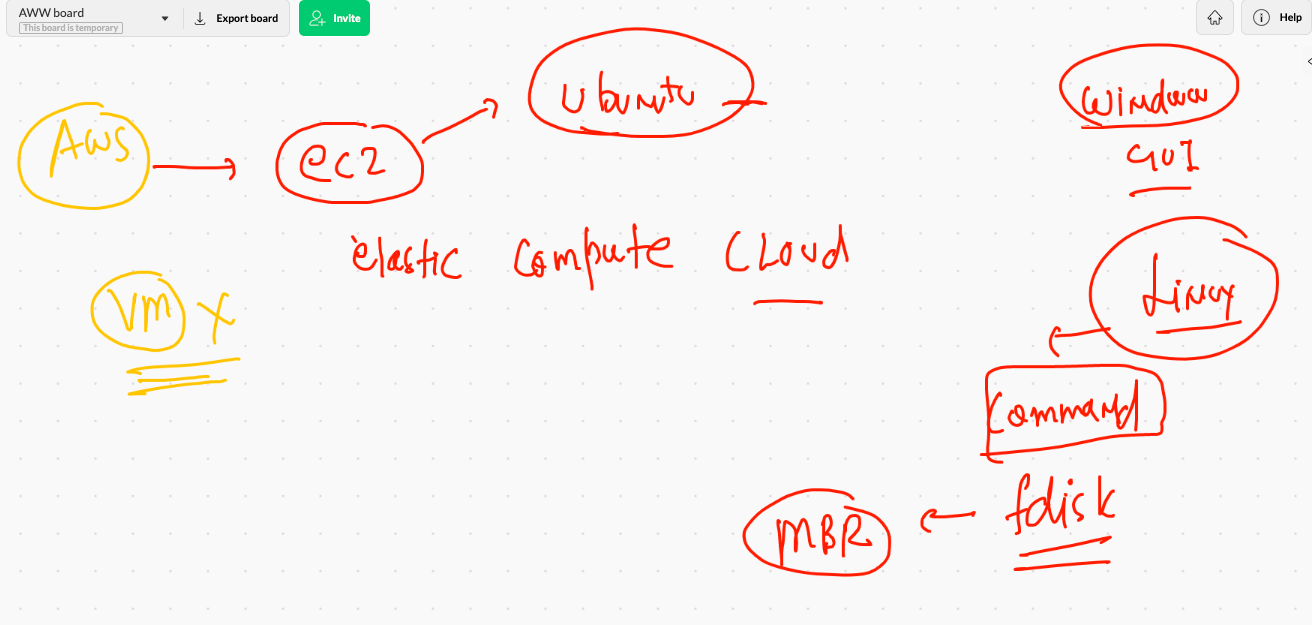 AWW board
This board is temporary
Export board
Invite
Help
AWS
ec2
Ubuntu
elastic compute cloud
VM X
Window
GUI
Linux
Command
fdisk
MBR